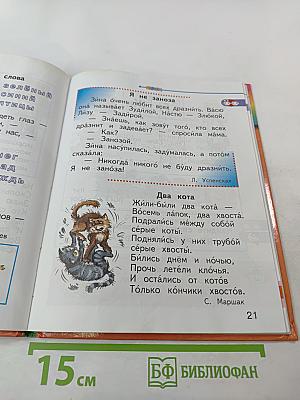 слова
зелёный
синий
птицы
деть глаз —
нас, —
нег
ад
ждь
ЛОВ —
Я не заноза
Зи́на о́чень лю́бит всех дразни́ть. Ва́сю
она́ называ́ет Зуди́лой, На́стю — Злю́кой,
Ли́зу — Зади́рой.
— Зна́ешь, как зову́т того́, кто всех
дра́знит и задева́ет? — спроси́ла ма́ма.
— Как?
— Зано́зой.
Зи́на насу́пилась, заду́малась, а пото́м
сказа́ла:
— Никогда́ никого́ не бу́ду дразни́ть.
Я не зано́за!
Л. Успенская
Два кота
Жи́ли-бы́ли два кота́ —
Во́семь ла́пок, два хвоста́.
Подрали́сь ме́жду собо́й
се́рые коты́.
Подняли́сь у них трубо́й
се́рые хвосты́.
Би́лись днём и но́чью,
Прочь лете́ли кло́чья.
И оста́лись от кото́в
То́лько ко́нчики хвосто́в.
С. Маршак
21
15 см
БФ БИБЛИОФАН